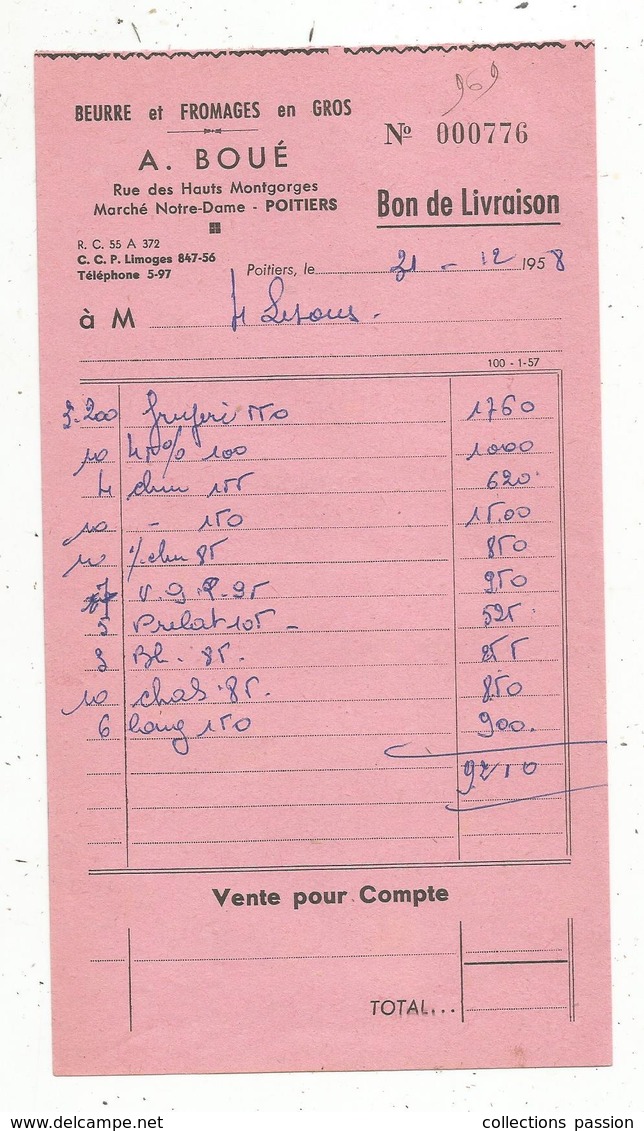 969
BEURRE et FROMAGES en GROS
Nº 000776
A. BOUÉ
Rue des Hauts Montgorges
Marché Notre-Dame - POITIERS
Bon de Livraison
R. C. 55 A 372
C. C. P. Limoges 847-56
Téléphone 5-97
Poitiers, le 31 - 12 1958
à M
100 - 1-57
3.200 550 1760
10 45% 100 1000
4 155 620
10 - 150 1500
10 85 850
7 95 950
5 Prelat 105 - 525
3 Bl. 85. 255
10 chab. 85. 850
6 150 900.
9210
Vente pour Compte
TOTAL...
collections passion